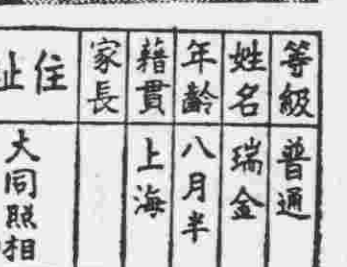 等級 普通
姓名 瑞金
年齡 八月半
藉貫 上海
家長
住址 大同照相